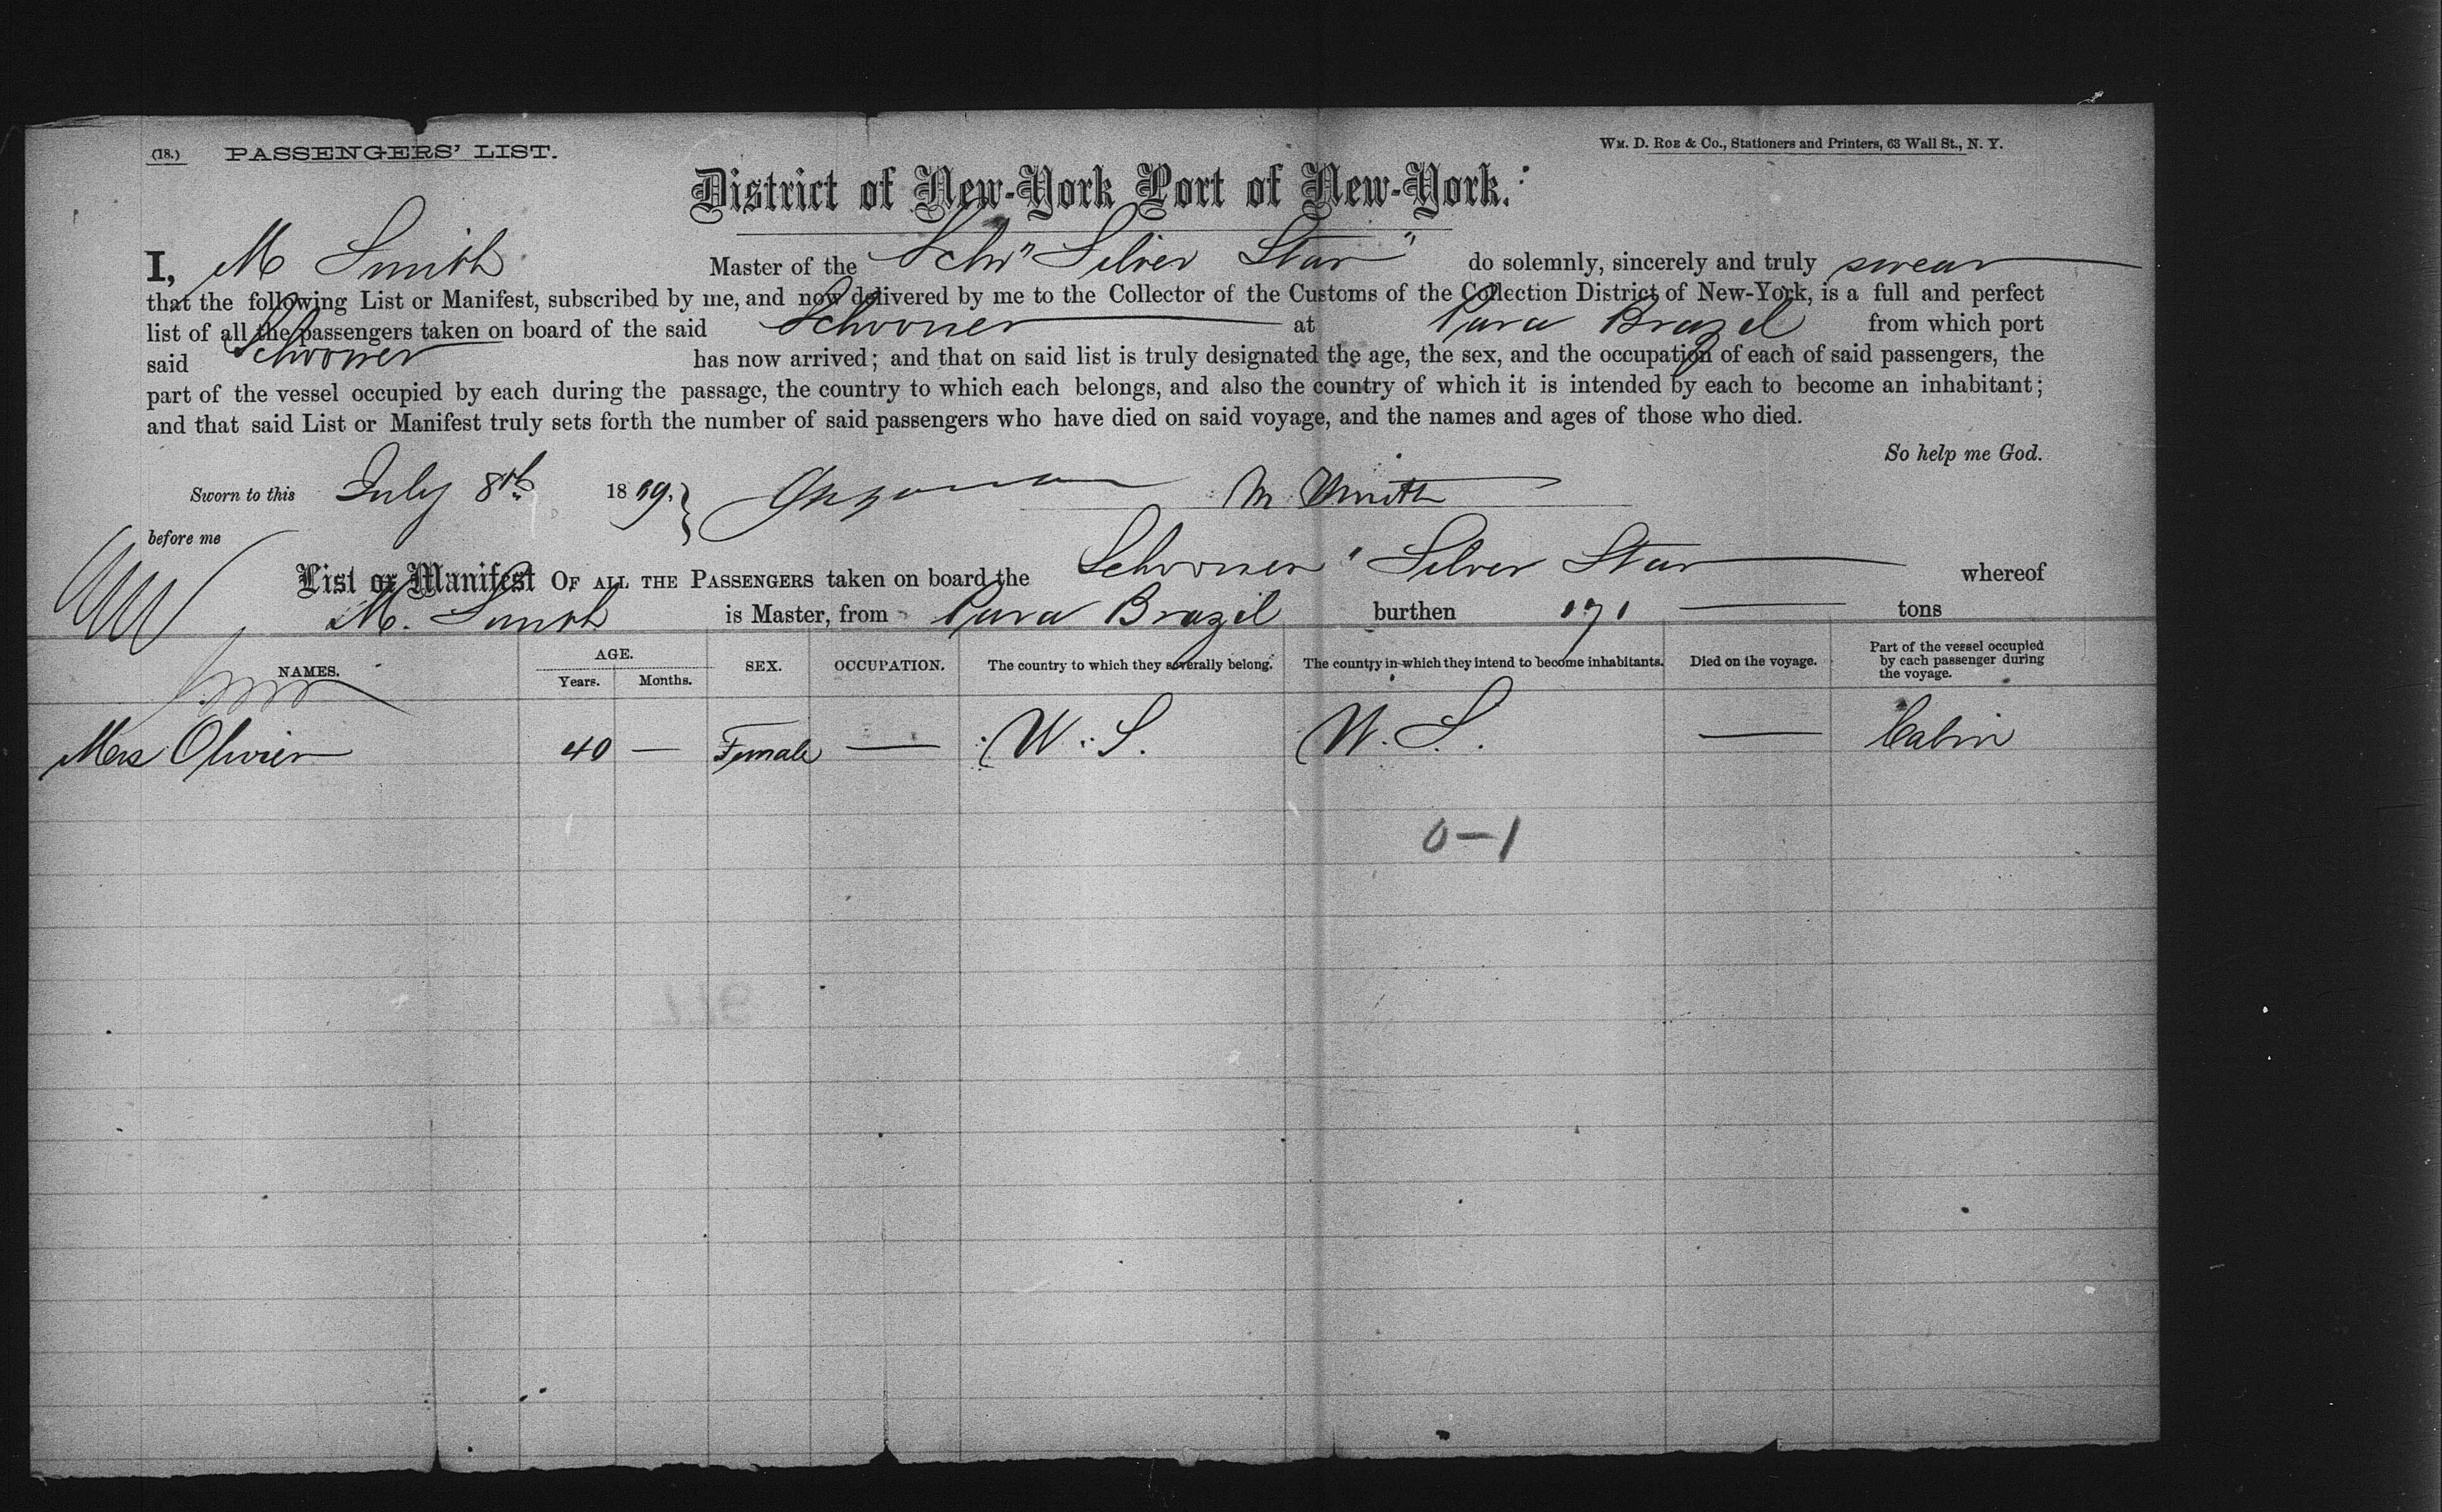 (18.) PASSENGERS' LIST. WM. D. ROE & CO., Stationers and Printers, 63 Wall St., N. Y.
District of New-York Port of New-York.
I, M Smith Master of the Schr "Silver Star" do solemnly, sincerely and truly swear
that the following List or Manifest, subscribed by me, and now delivered by me to the Collector of the Customs of the Collection District of New-York, is a full and perfect
list of all the passengers taken on board of the said Schooner at Para Brazil from which port
said Schooner has now arrived; and that on said list is truly designated the age, the sex, and the occupation of each of said passengers, the
part of the vessel occupied by each during the passage, the country to which each belongs, and also the country of which it is intended by each to become an inhabitant;
and that said List or Manifest truly sets forth the number of said passengers who have died on said voyage, and the names and ages of those who died.
So help me God.
Sworn to this July 8th 1889. M Smith
before me
List or Manifest OF ALL THE PASSENGERS taken on board the Schooner "Silver Star whereof
M. Smith is Master, from Para Brazil burthen 171 tons
NAMES. AGE. Years. Months. SEX. OCCUPATION. The country to which they severally belong. The country in which they intend to become inhabitants. Died on the voyage. Part of the vessel occupied by each passenger during the voyage.
Mrs Olivier 40 — Female — U. S. U. S. — Cabin
0-1